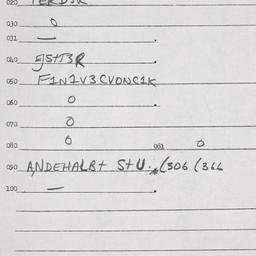 020
030 0
031 —
040
050 F1N1V3CVONC1K
060 0
070 0
080 0 081 0
090 A,NDEHALBT StU., (306 (366
100 —